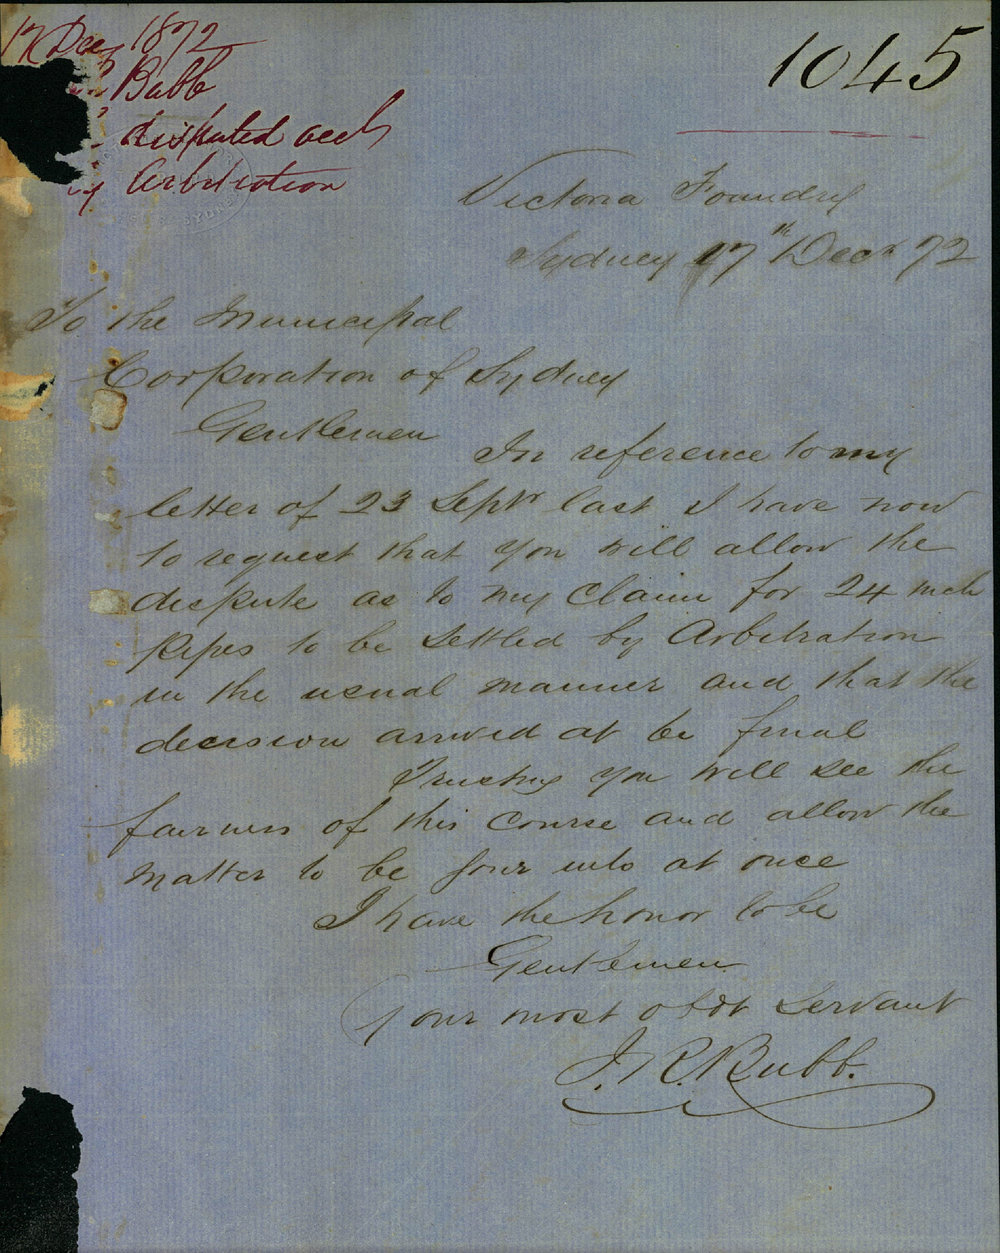 17 Dec 1872
Bubb
disputed acct
by Arbitration
1045
Victoria Foundry
Sydney 17th Decr 72
To the Municipal
Corporation of Sydney
Gentlemen
In reference to my
letter of 23 Septr last I have now
to request that you will allow the
dispute as to my Claim for 24 inch
pipes to be settled by Arbitration
in the usual manner and that the
decision arrived at be final
Trusting you will see the
fairness of this course and allow the
matter to be gone into at once
I have the honor to be
Gentlemen
your most obdt servant
J. R. Bubb.